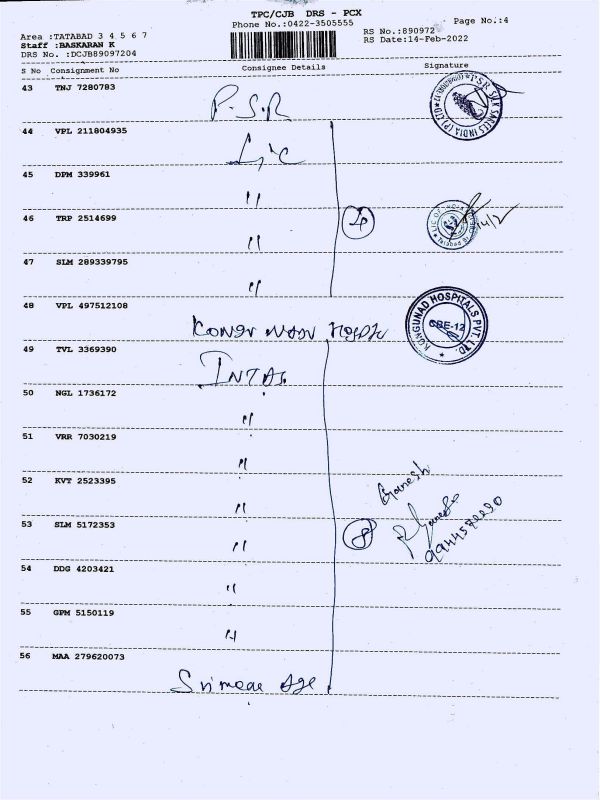 TPC/CJB DRS - PCX
Phone No.:0422-3505555
Page No.:4
Area :TATABAD 3 4 5 6 7
Staff :BASKARAN K
DRS No. :DCJB89097204
RS No.:890972
RS Date:14-Feb-2022
S No Consignment No Consignee Details Signature
43 TNJ 7280783
P.S.R
44 VPL 211804935
LIC
45 DPM 339961
"
46 TRP 2514699
"
4
14/2
47 SLM 289339795
"
48 VPL 497512108
KONGUNAD HOSPITALS PVT. LTD.
CBE-12
49 TVL 3369390
50 NGL 1736172
"
51 VRR 7030219
"
52 KVT 2523395
"
Ganesh
53 SLM 5172353
"
8
54 DDG 4203421
"
55 GPM 5150119
"
56 MAA 279620073